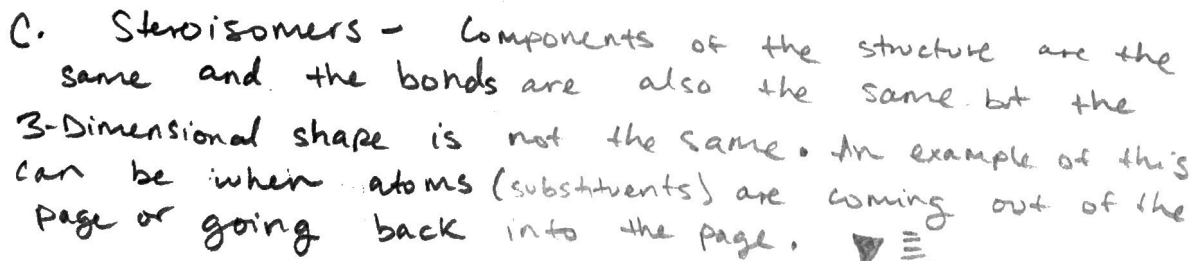 C. Steroisomers - Components of the structure are the
same and the bonds are also the same but the
3-Dimensional shape is not the same. An example of this
can be when atoms (substituents) are coming out of the
page or going back into the page.